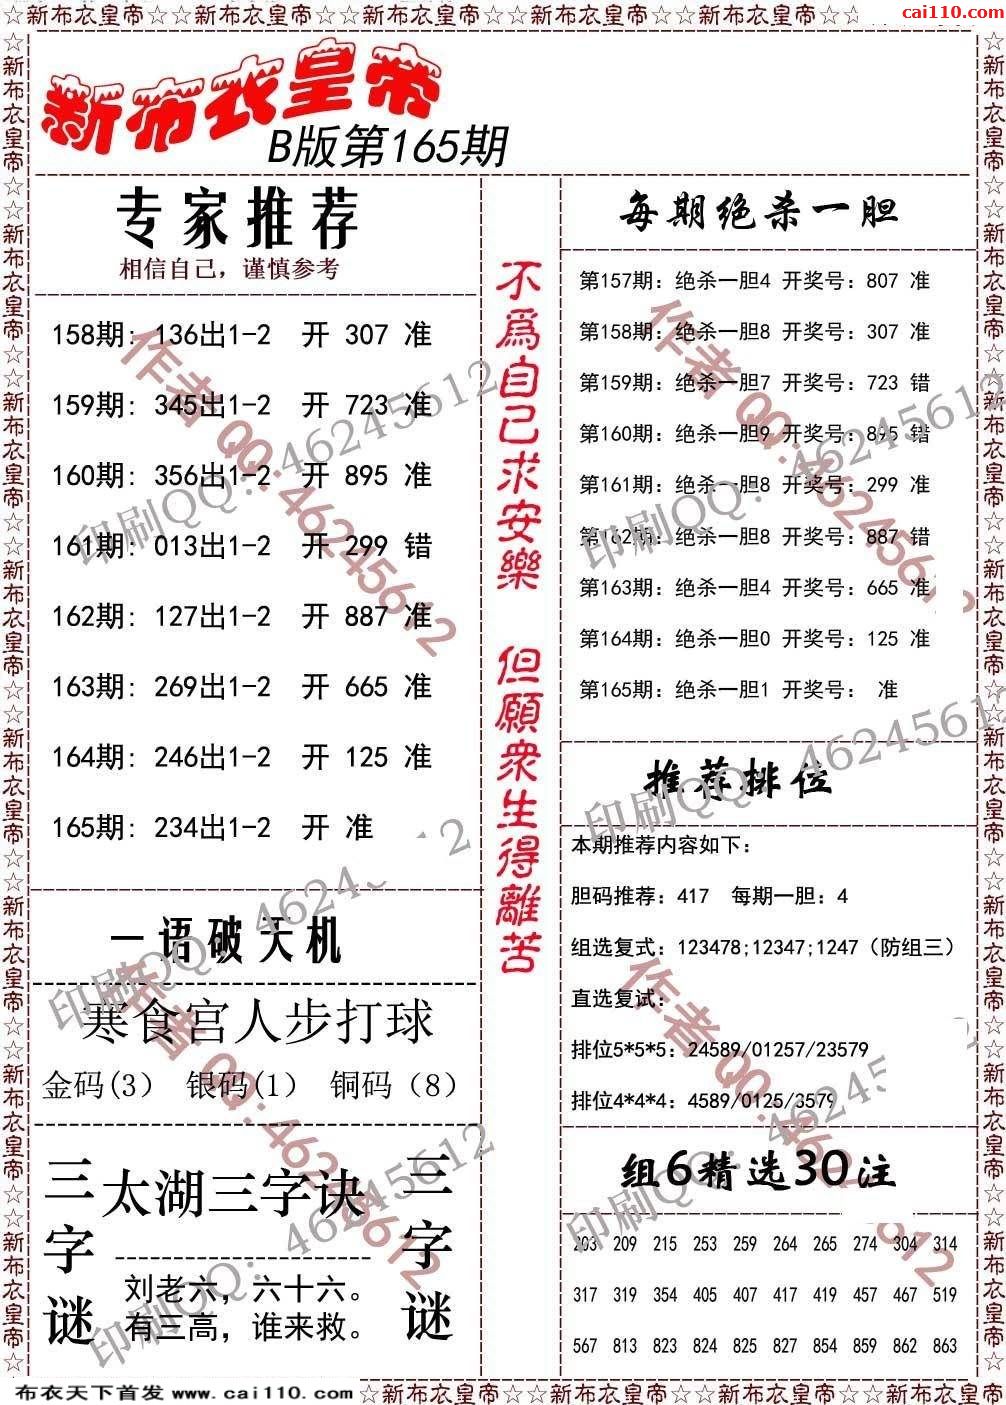 ☆新布衣皇帝☆☆新布衣皇帝☆☆新布衣皇帝☆☆新布衣皇帝☆☆新布衣皇帝☆☆
cai110.com
新布衣皇帝
B版第165期
专家推荐
相信自己，谨慎参考
158期: 136出1-2 开 307 准
159期: 345出1-2 开 723 准
160期: 356出1-2 开 895 准
161期: 013出1-2 开 299 错
162期: 127出1-2 开 887 准
163期: 269出1-2 开 665 准
164期: 246出1-2 开 125 准
165期: 234出1-2 开 准
一语破天机
寒食宫人步打球
金码(3） 银码(1） 铜码（8）
三字谜
太湖三字诀
刘老六，六十六。
有三高，谁来救。
三字谜
不為自己求安樂 但願衆生得離苦
每期绝杀一胆
第157期: 绝杀一胆4 开奖号: 807 准
第158期: 绝杀一胆8 开奖号: 307 准
第159期: 绝杀一胆7 开奖号: 723 错
第160期: 绝杀一胆9 开奖号: 895 错
第161期: 绝杀一胆8 开奖号: 299 准
第162期: 绝杀一胆8 开奖号: 887 错
第163期: 绝杀一胆4 开奖号: 665 准
第164期: 绝杀一胆0 开奖号: 125 准
第165期: 绝杀一胆1 开奖号: 准
推荐排位
本期推荐内容如下:
胆码推荐: 417 每期一胆: 4
组选复式: 123478;12347;1247（防组三）
直选复试:
排位5*5*5: 24589/01257/23579
排位4*4*4: 4589/0125/3579
组6精选30注
203 209 215 253 259 264 265 274 304 314
317 319 354 405 407 417 419 457 467 519
567 813 823 824 825 827 854 859 862 863
作者 QQ:46245612
印刷QQ: 46245612
布衣天下首发 www.cai110.com
☆新布衣皇帝☆☆新布衣皇帝☆☆新布衣皇帝☆☆新布衣皇帝☆